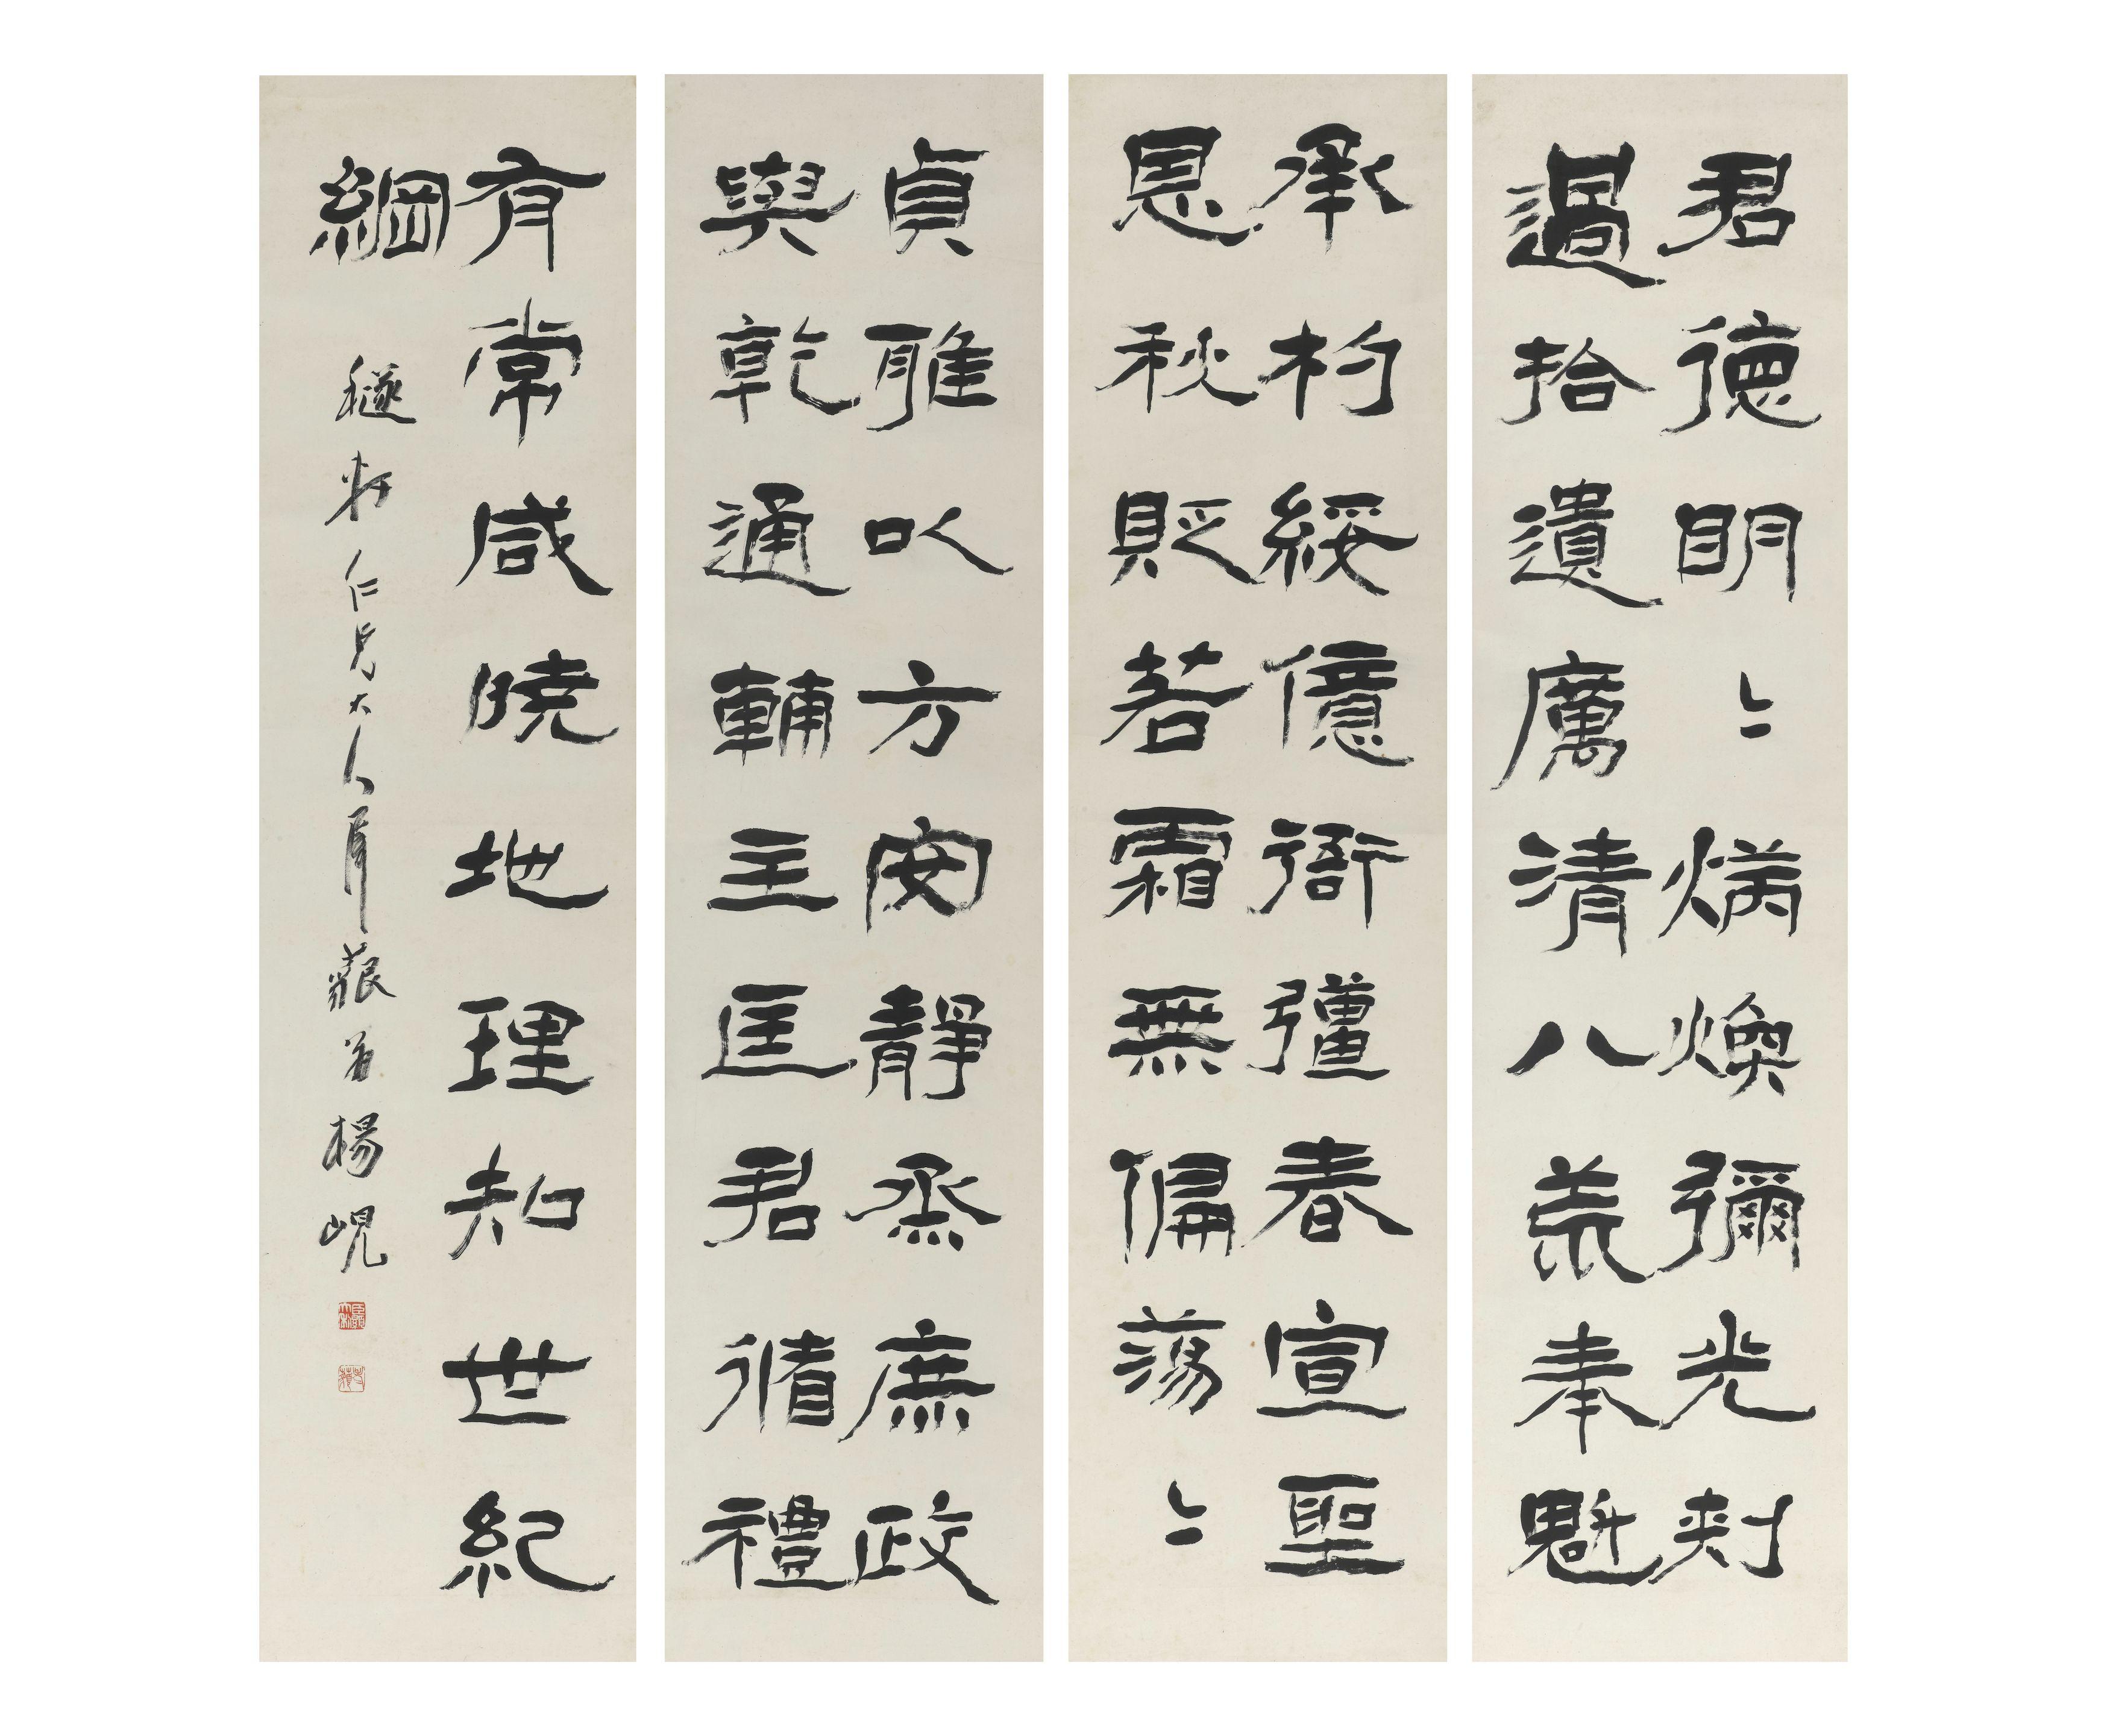 君德明〻炳煥彌光刺
過拾遺厲清八荒奉魁
承杓綏億衙彊春宣聖
恩秋貶若霜無偏蕩〻
貞雅以方安靜烝庶政
與乾通輔主匡君循禮
有常咸曉地理知世紀
綱
穟仁兄大人屬藐翁楊峴